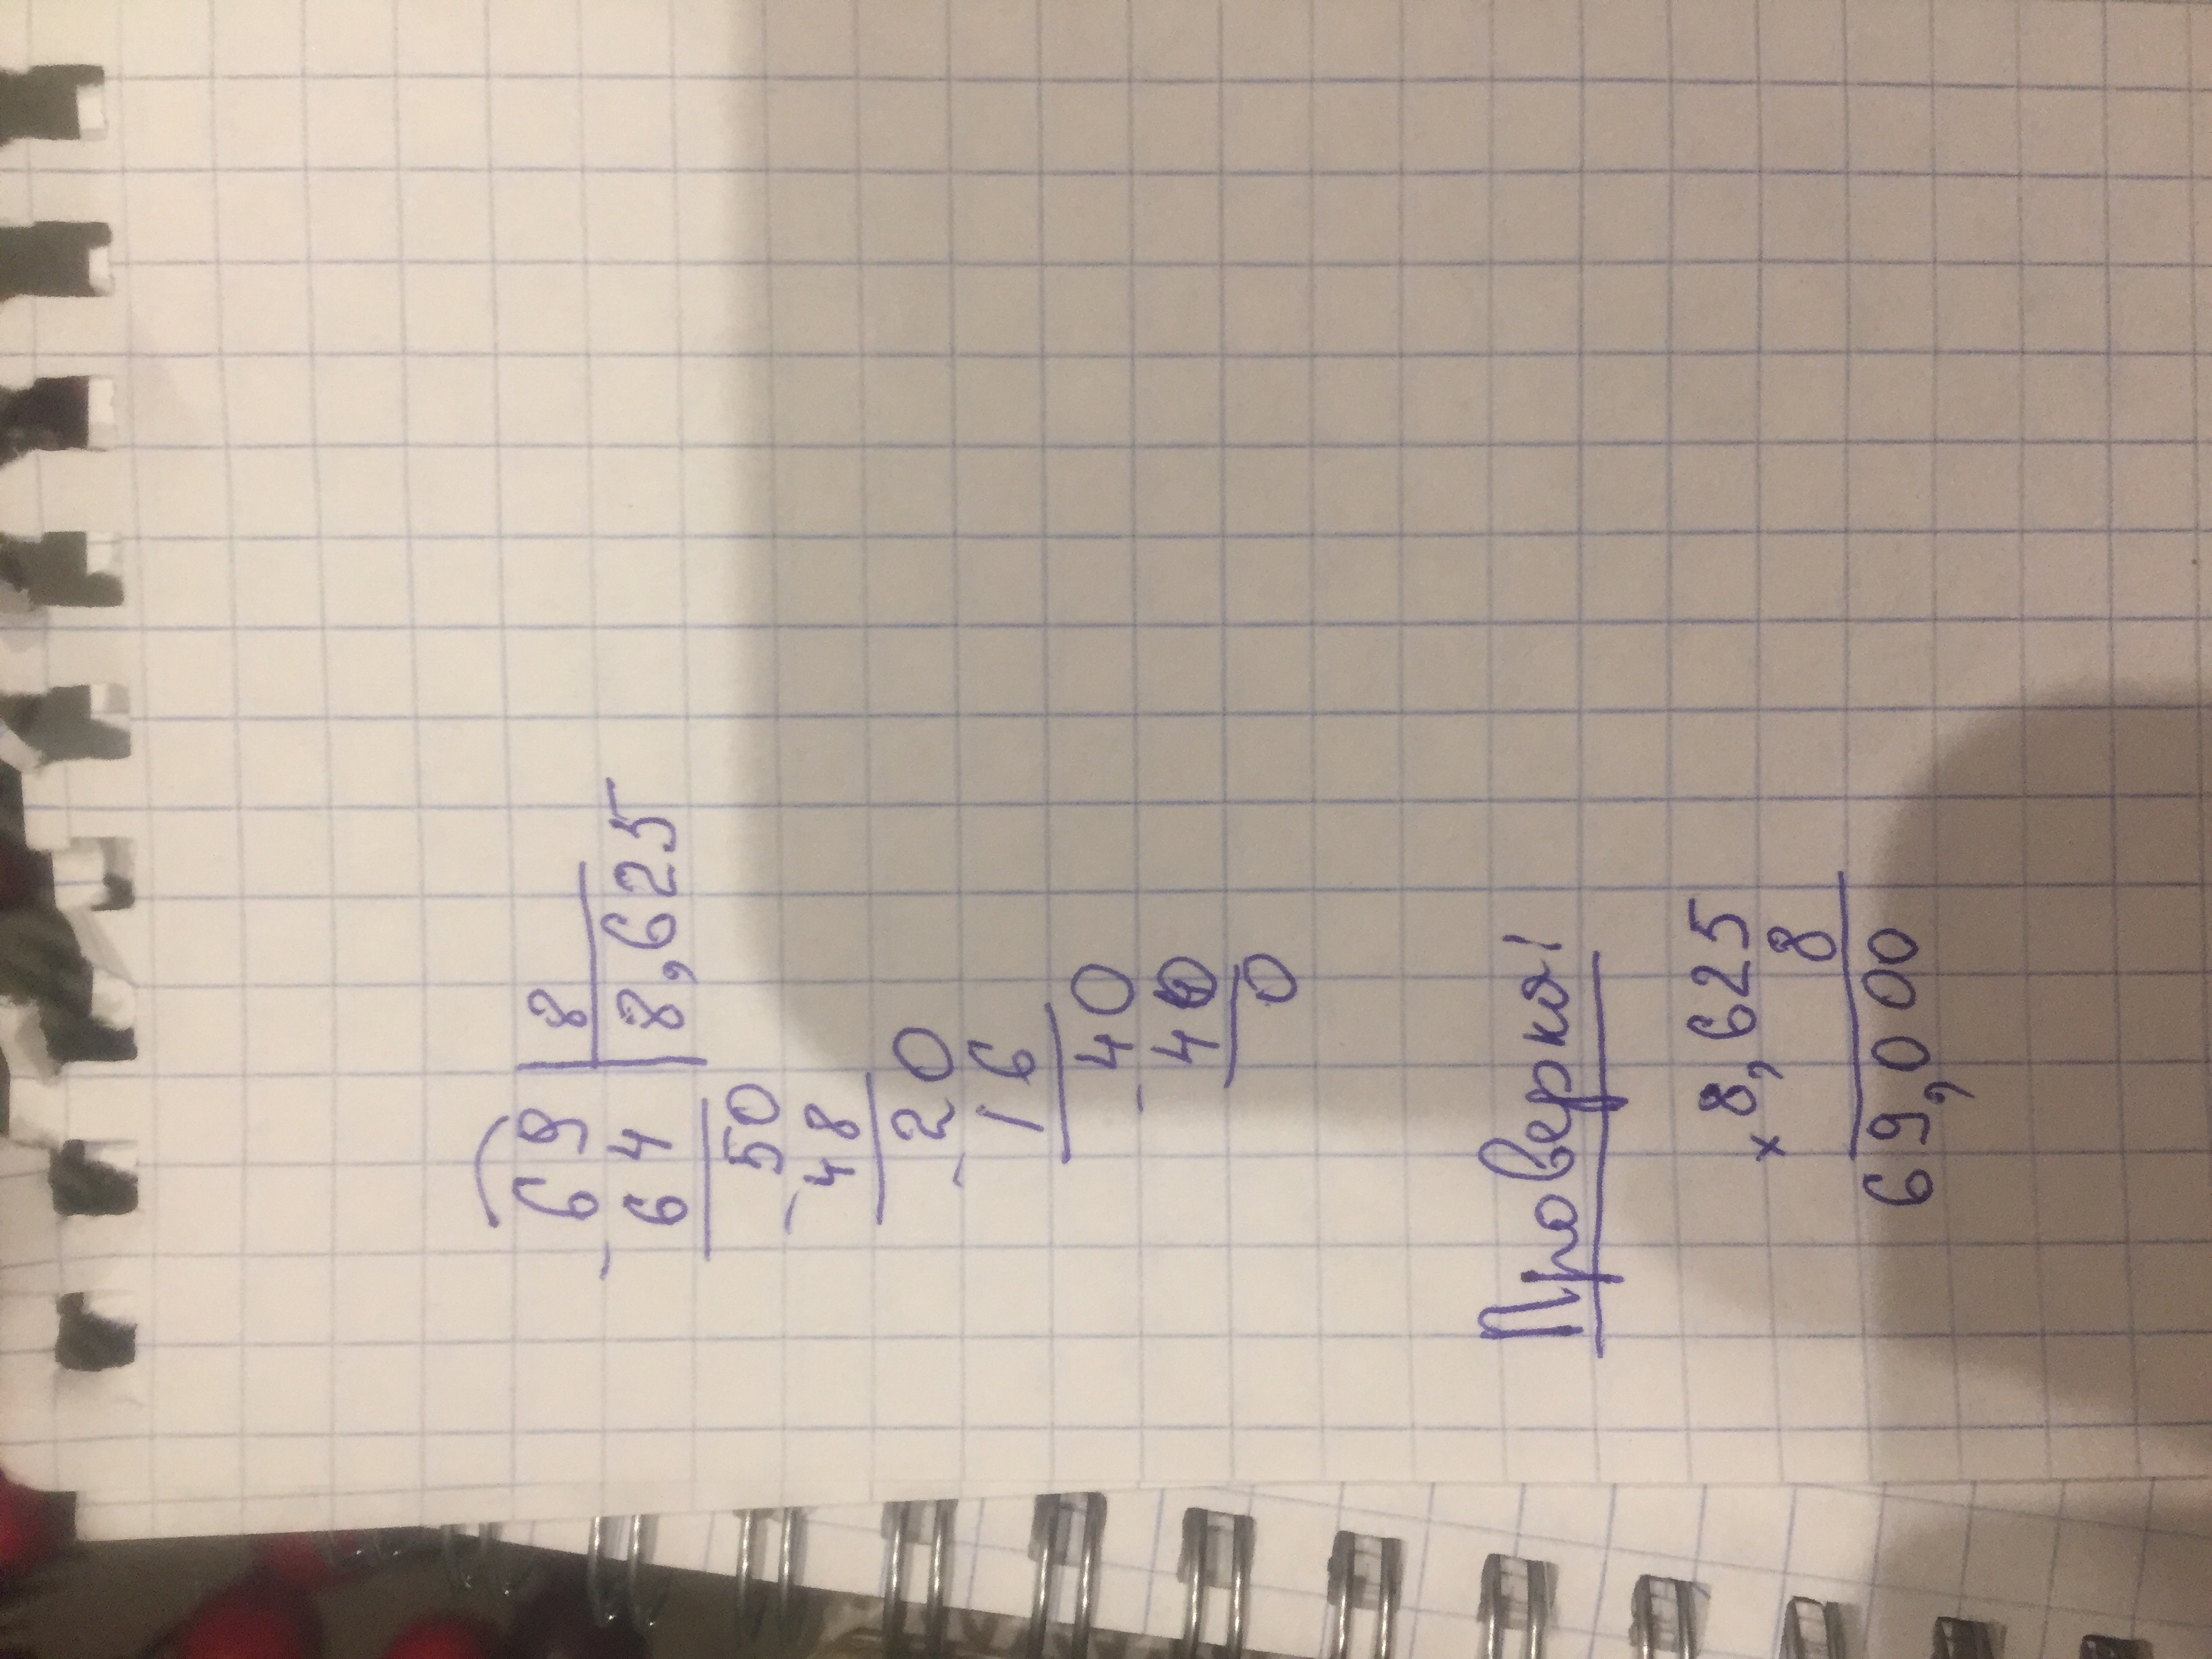 69 | 8
- 64 | 8,625
50
- 48
20
- 16
40
- 40
0
Проверка!
× 8,625
8
69,000